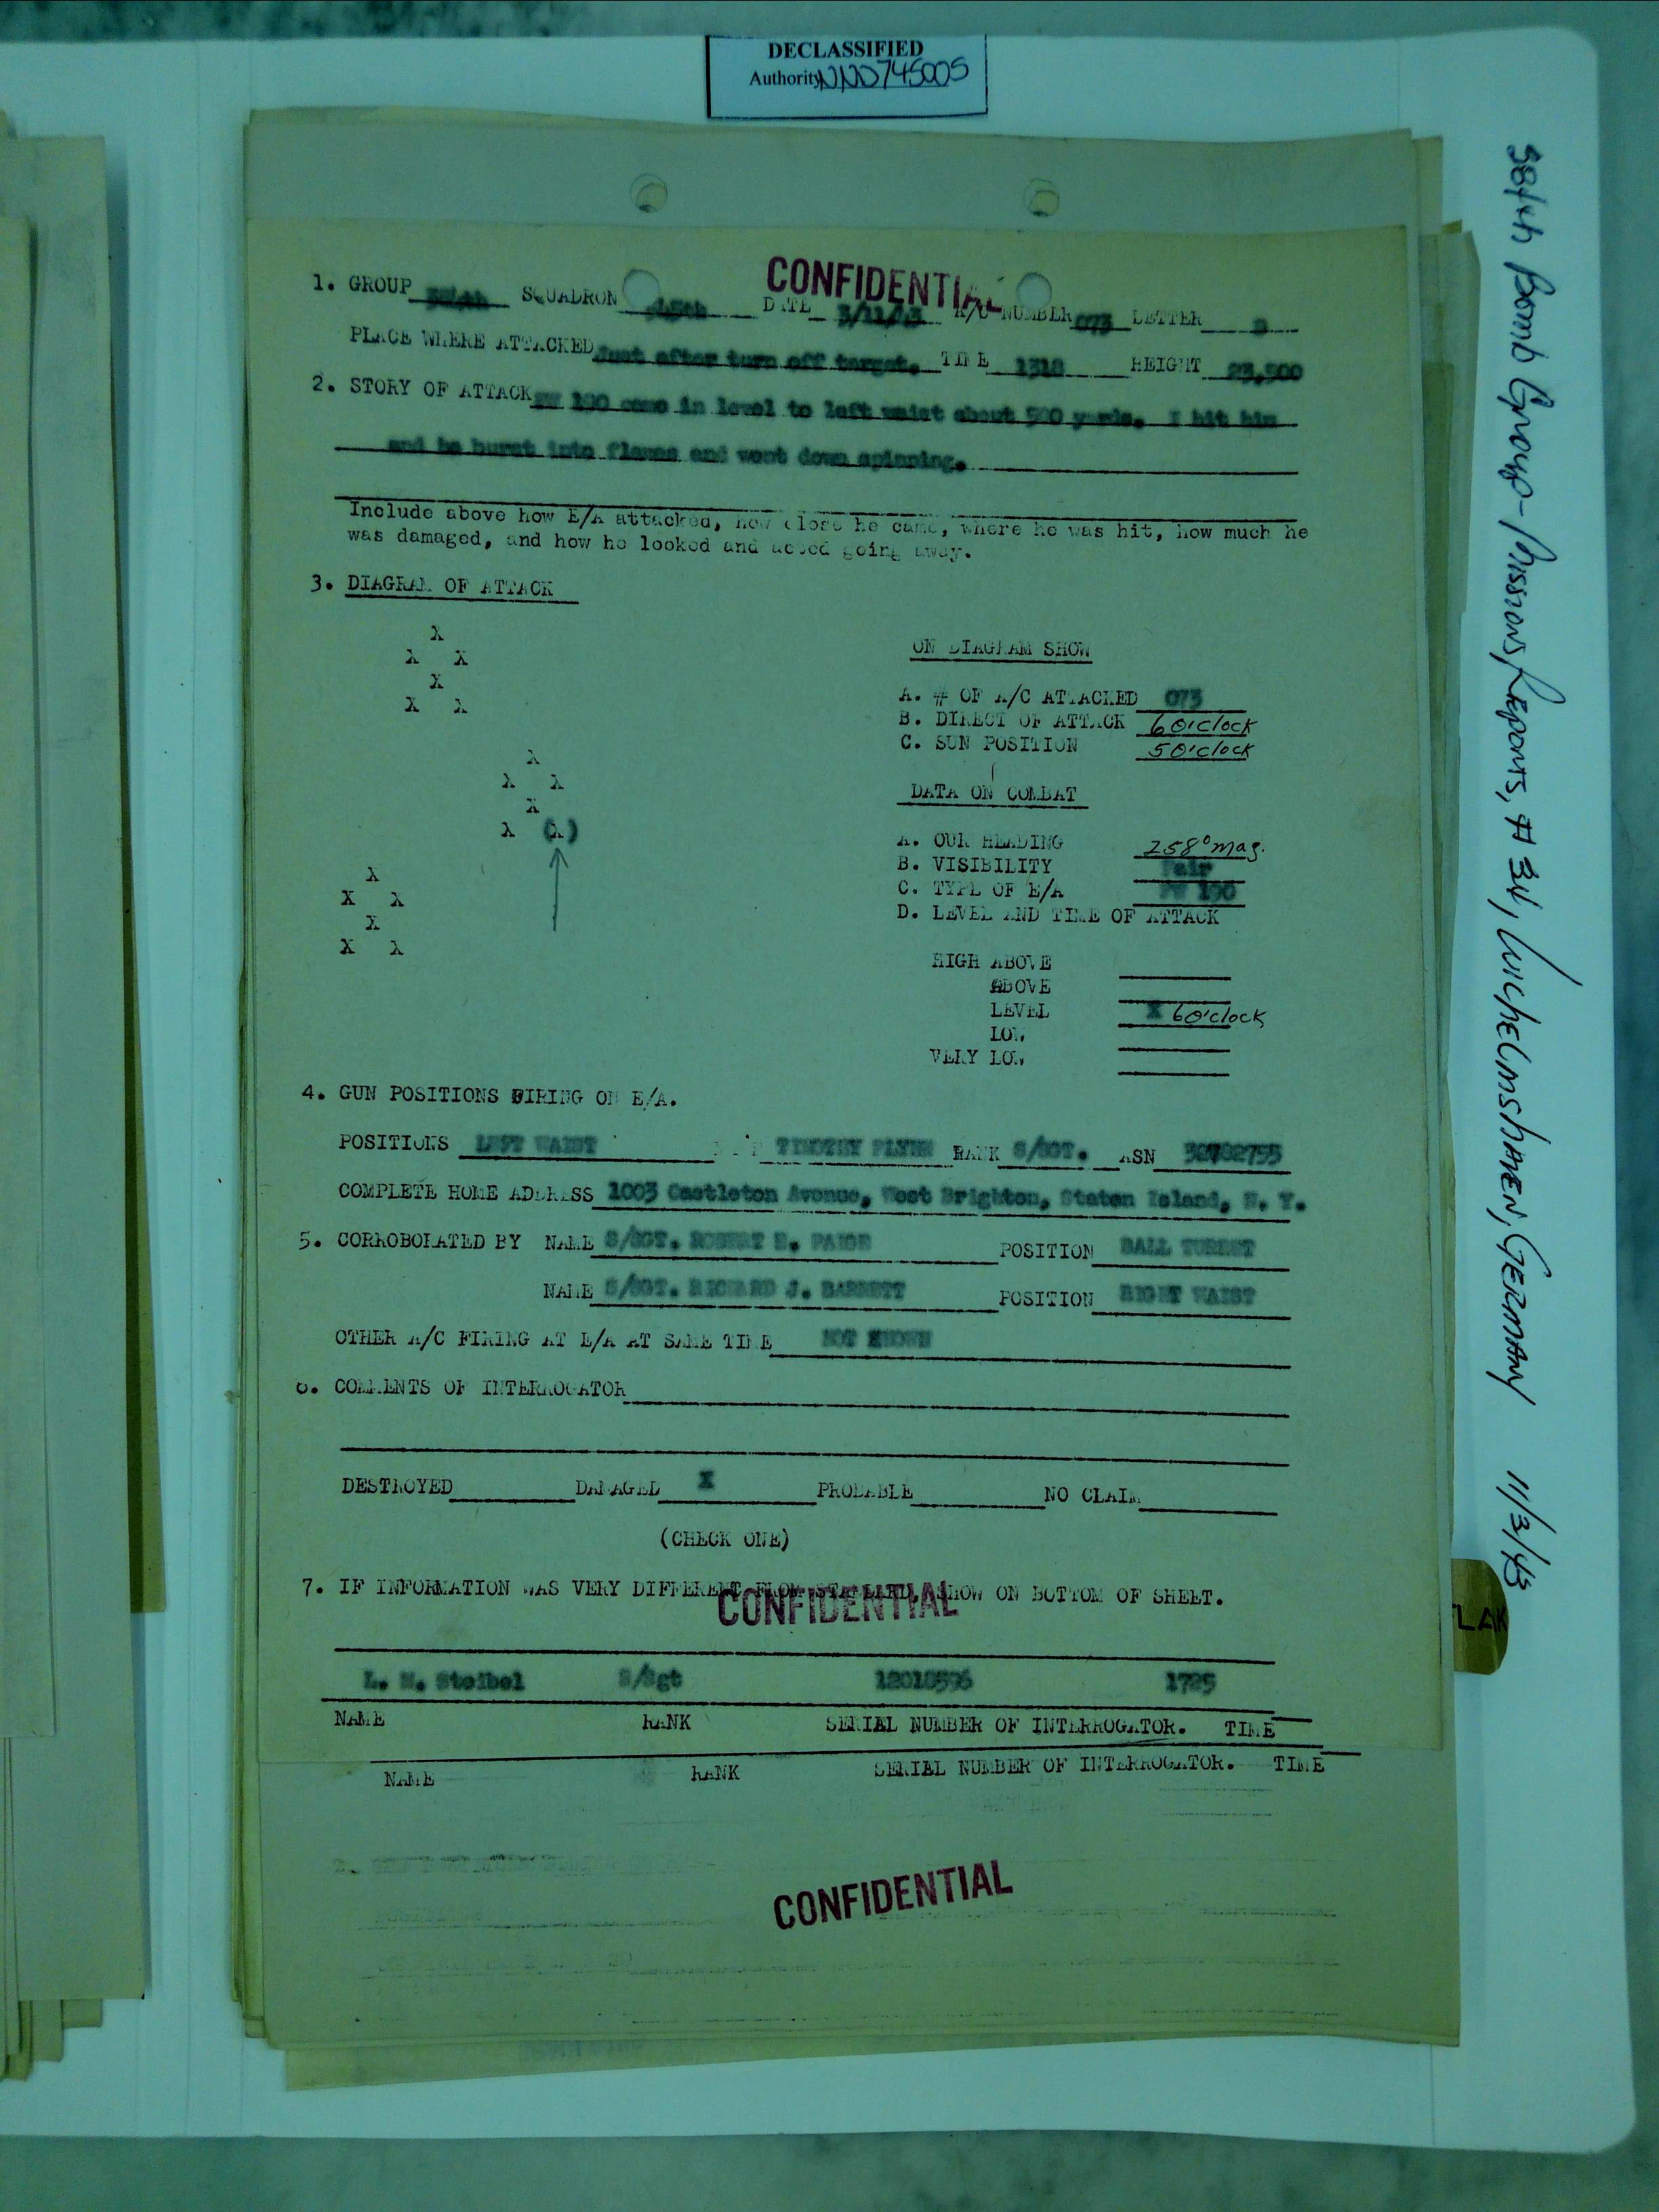 DECLASSIFIED
Authority NND745005
CONFIDENTIAL
1. GROUP 384th SQUADRON DATE 3/11/43 A/C NUMBER 073 LETTER
PLACE WHERE ATTACKED Just after turn off target. TIME 1318 HEIGHT 23,900
2. STORY OF ATTACK FW 190 came in level to left waist about 500 yards. I hit him
and he burst into flames and went down spinning.
Include above how E/A attacked, how close he came, where he was hit, how much he
was damaged, and how he looked and acted going away.
3. DIAGRAM OF ATTACK
X
X X
X
X X
X
X X
X
X (X)
X
X X
X
X X
ON DIAGRAM SHOW
A. # OF A/C ATTACKED 073
B. DIRECT OF ATTACK 6 O'clock
C. SUN POSITION 5 O'clock
DATA ON COMBAT
A. OUR HEADING 258° mag.
B. VISIBILITY Fair
C. TYPE OF E/A FW 190
D. LEVEL AND TIME OF ATTACK
HIGH ABOVE
ABOVE
LEVEL X 6 O'clock
LOW
VERY LOW
4. GUN POSITIONS FIRING ON E/A.
POSITIONS LEFT WAIST TIMOTHY FLYNN RANK S/SGT. ASN 32702755
COMPLETE HOME ADDRESS 1003 Castleton Avenue, West Brighton, Staten Island, N. Y.
5. CORROBORATED BY NAME S/SGT. ROBERT E. PAIGE POSITION BALL TURRET
NAME S/SGT. RICHARD J. BARNETT POSITION RIGHT WAIST
OTHER A/C FIRING AT E/A AT SAME TIME NOT KNOWN
6. COMMENTS OF INTERROGATOR
DESTROYED DAMAGED X PROBABLE NO CLAIM
(CHECK ONE)
7. IF INFORMATION WAS VERY DIFFERENT FROM STANDARD, SHOW ON BOTTOM OF SHEET.
CONFIDENTIAL
L. N. Steibel S/Sgt 12018596 1725
NAME RANK SERIAL NUMBER OF INTERROGATOR. TIME
NAME RANK SERIAL NUMBER OF INTERROGATOR. TIME
CONFIDENTIAL
384th Bomb Group - Missions Reports, # 34, WilhELMShAVEN, GERMANY 11/3/43
FLAK